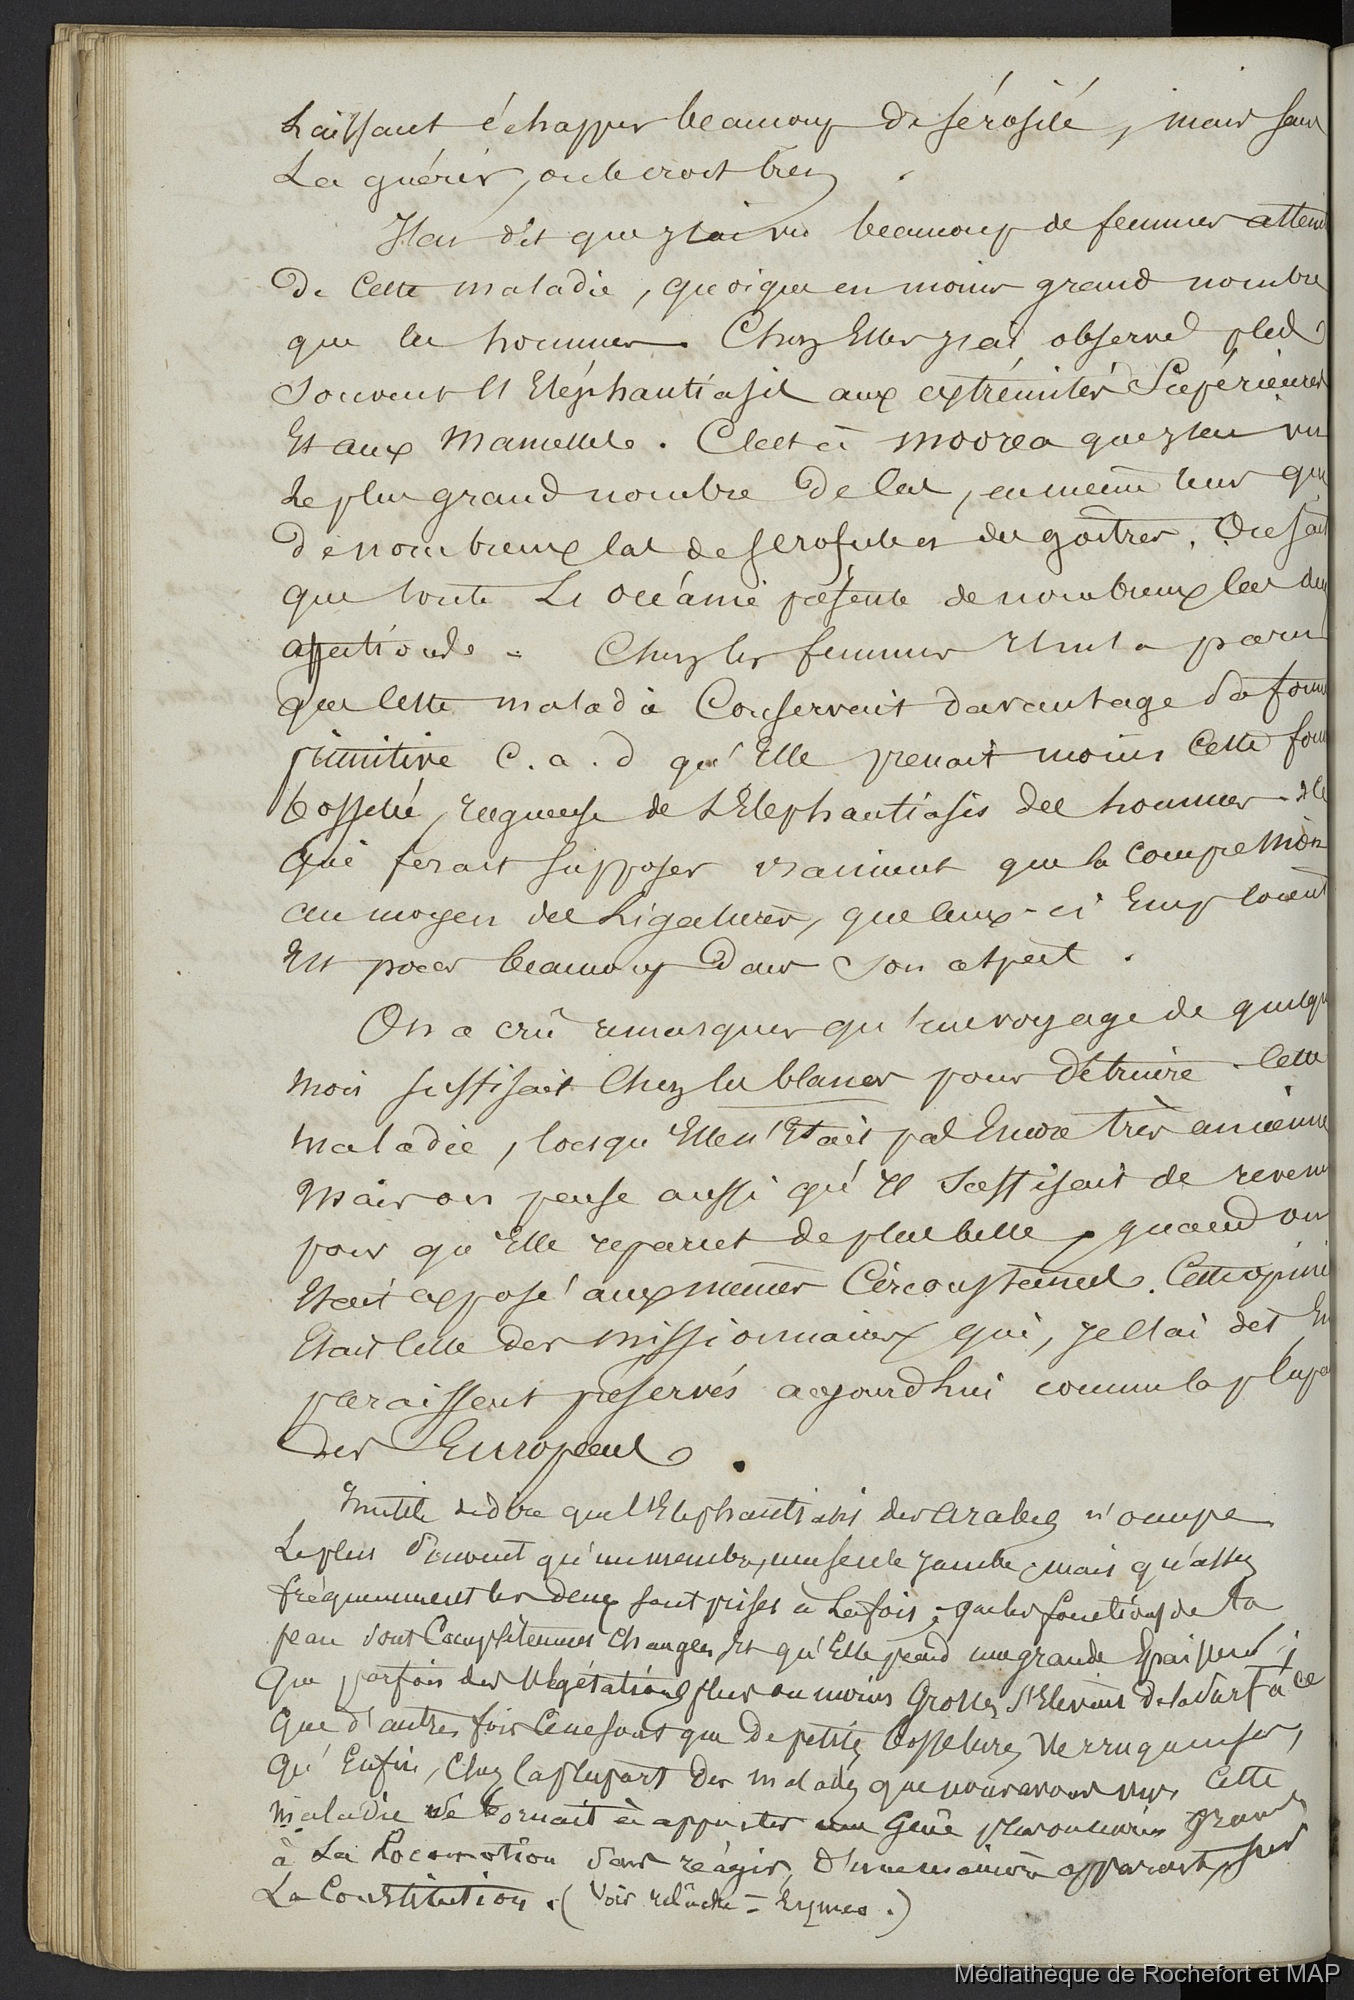 Laissant échapper beaucoup de sérosité, mais sans
La guérir, on le croit bien.
J'ai dit que j'ai vu beaucoup de femmes attein
De Cette maladie, quoique en moins grand nombre
que les hommes. Chez Elles j'ai observé plus
Souvent l'Eléphantiasis aux extrémités Supérieures
Et aux Mamelles. C'est à Moorea que j'en ai vu
Le plus grand nombre de Cas, en même tems que
De nombreux Cas de scrofules et du goîtres. On sait
que toute L'Océanie présente de nombreux Cas des
affections. Chez les femmes il m'a paru
que Cette maladie Conservait davantage Sa forme
primitive C.a.d qu'Elle prenait moins Cette form
bosselée, rugueuse de L'Elephantiasis des hommes. Ce
qui ferait Supposer vraiment que la compression
au moyen des Ligatures, que Ceux-ci Employaient
Est pour beaucoup Dans Son aspect.
On a crû remarquer qu'un voyage de quelqu
Mois suffisait Chez les blancs pour détruire Cette
Maladie, lorsqu'Elle n'Etait pas Encore très ancienne
Mais on pense aussi qu'Il Suffisait de revenir
pour qu'Elle reparut de plus belle, quand on
Etait exposé aux mêmes Circonstances. Cette opini
Etait Celle des Missionnaires qui, je l'ai dit En
paraissent préservés aujourd'hui comme la plupa
des Européens.
Inutile de dire que l'Elephantiasis des Arabes n'occupe
Le plus Souvent qu'un membre, une seule jambe; mais qu'assez
fréquemment les deux sont prises à La fois; que les fonctions de La
peau sont Complètement Changées, Et qu'Elle prend une grande Epaisseur;
Que parfois des Végétations plus ou moins Grosses S'Elèvent De la Surface
Que d'autres fois Ce ne sont que De petites bosselures Verruqueuses,
Qu'Enfin, Chez la plupart Des malades que nous avons vus Cette
Maladie Se bornait à apporter une Gêne plus ou moins grande
à La Locomotion Sans réagir, D'une manière apparente, sur
La Constitution. (Voir relâche = )
Médiathèque de Rochefort et MAP